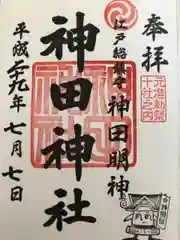 奉拝
元准勅祭
十社之内
江戸総鎮守 神田明神
神田神社
平成二十九年七月七日